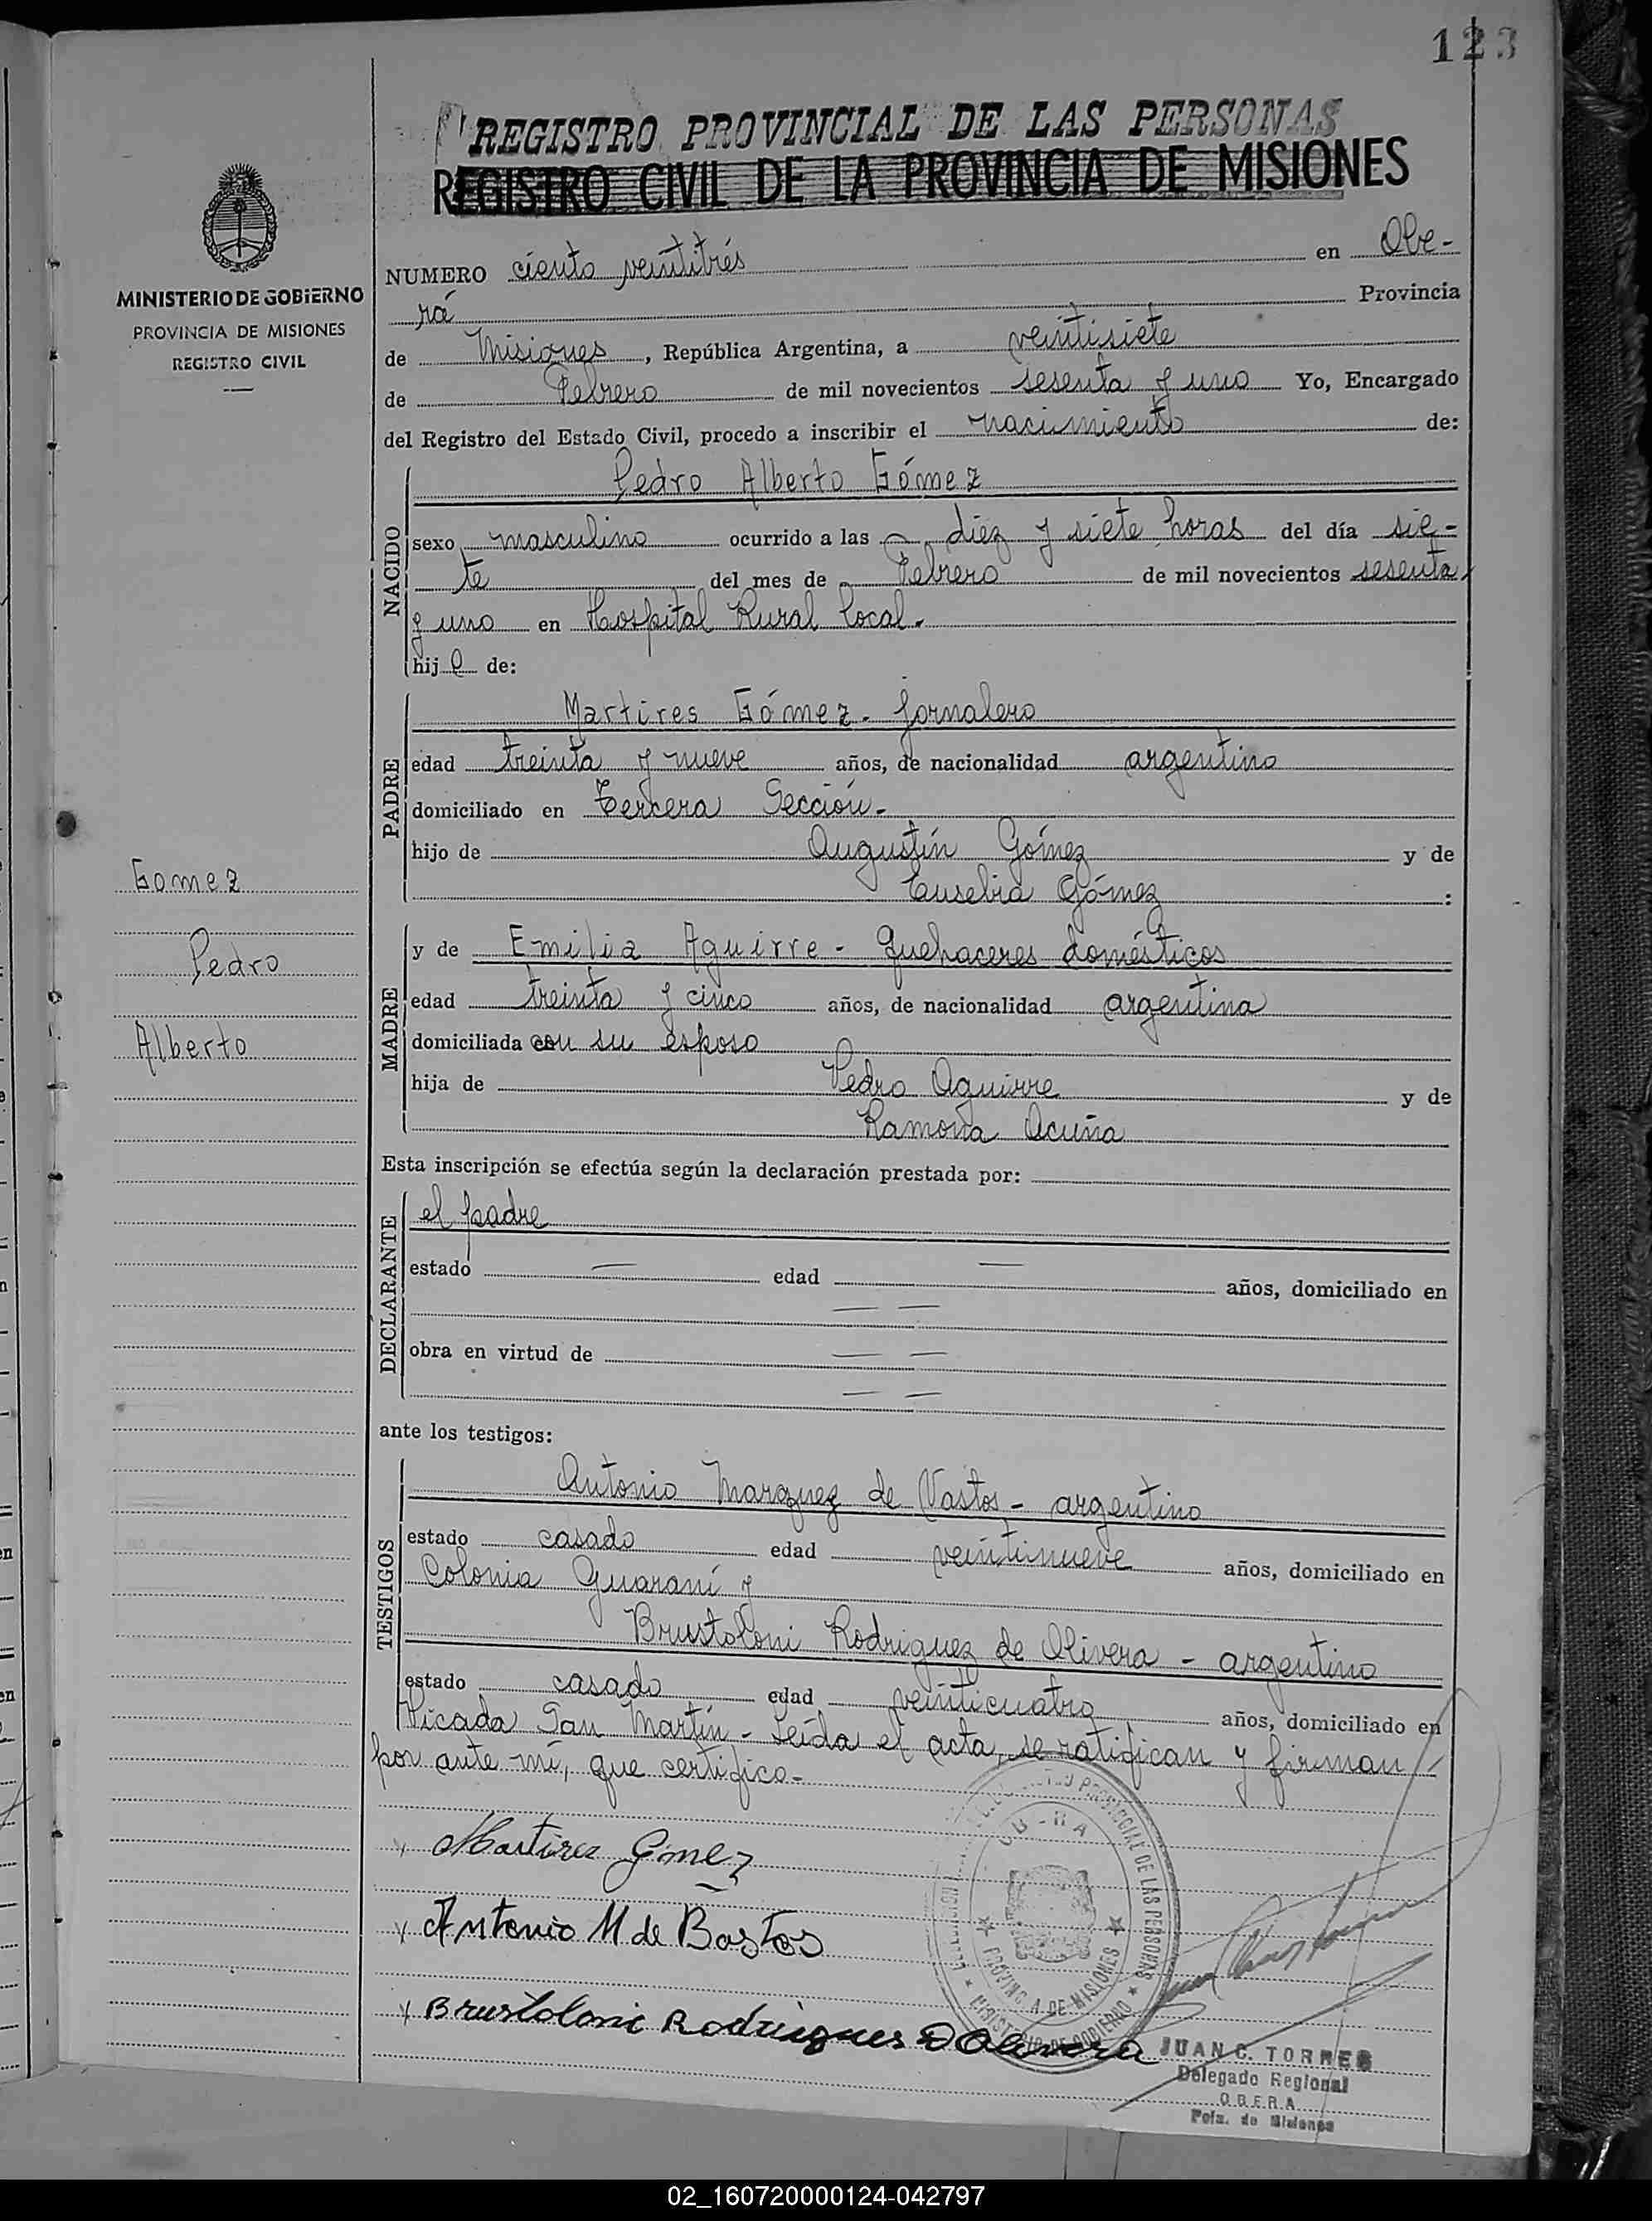 123
REGISTRO PROVINCIAL DE LAS PERSONAS
REGISTRO CIVIL DE LA PROVINCIA DE MISIONES
MINISTERIO DE GOBIERNO
PROVINCIA DE MISIONES
REGISTRO CIVIL
NUMERO ciento veintitrés en Obe-
rá Provincia
de Misiones, República Argentina, a veintisiete
de Febrero de mil novecientos sesenta y uno Yo, Encargado
del Registro del Estado Civil, procedo a inscribir el nacimiento de:
NACIDO
Pedro Alberto Gómez
sexo masculino ocurrido a las diez y siete horas del día sie-
te del mes de Febrero de mil novecientos sesenta
y uno en Hospital Rural local.
hijo de:
PADRE
Martires Gómez - Jornalero
edad treinta y nueve años, de nacionalidad argentino
domiciliado en Tercera Sección-
hijo de Augustín Gómez y de
Eusebia Gómez :
Gomez
Pedro
Alberto
MADRE
y de Emilia Aguirre - Quehaceres domésticos
edad treinta y cinco años, de nacionalidad argentina
domiciliada con su esposo
hija de Pedro Aguirre y de
Ramona Acuña
Esta inscripción se efectúa según la declaración prestada por:
DECLARANTE
el padre
estado — edad — años, domiciliado en
— —
obra en virtud de — —
— —
ante los testigos:
TESTIGOS
Antonio Marquez de Vastos - argentino
estado casado edad veintinueve años, domiciliado en
Colonia Guaraní y
Brustoloni Rodriguez de Olivera - argentino
estado casado edad veinticuatro años, domiciliado en
Picada San Martín - Leída el acta, se ratifican y firman
por ante mí, que certifico-
Martirez Gimez
Antonio M de Bastos
Brustoloni Rodrigues D Olivera
PROVINCIAL DE LAS PERSONAS
PROVINCIA DE MISIONES
MINISTERIO DE GOBIERNO
JUAN C. TORRES
Delegado Regional
OBERA
Pcia. de Misiones
02_160720000124-042797